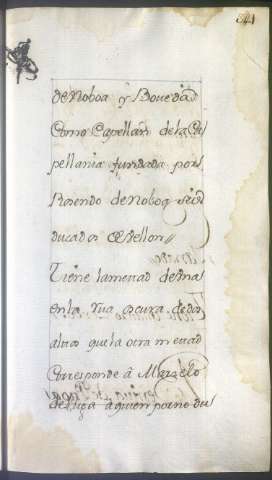 341
de Noboa y Bovedad
Como Capellan de la Ca
pellania fundada por
Rosendo de Noboa
ducados Vellon
Tiene la metad de
en la Rua escura de dos
altos que la otra metad
Corresponde â Marzelo
de Puga a quien por no du